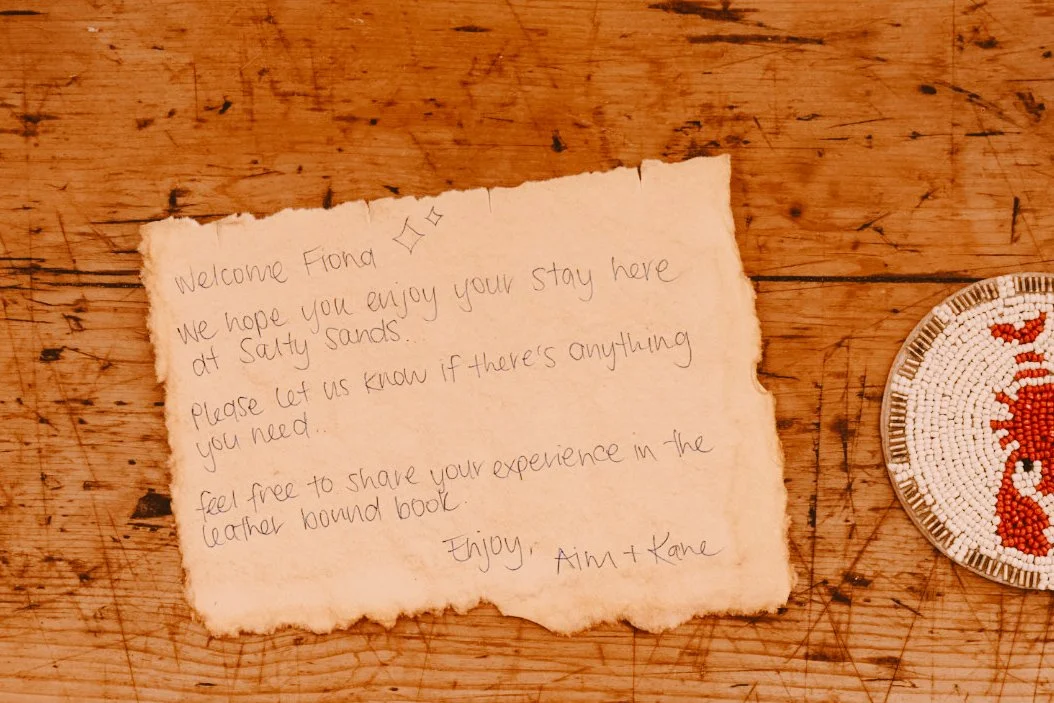 Welcome Fiona
We hope you enjoy your stay here
at Salty Sands..
Please let us know if there's anything
you need..
feel free to share your experience in the
leather bound book.
Enjoy, Aim + Kane